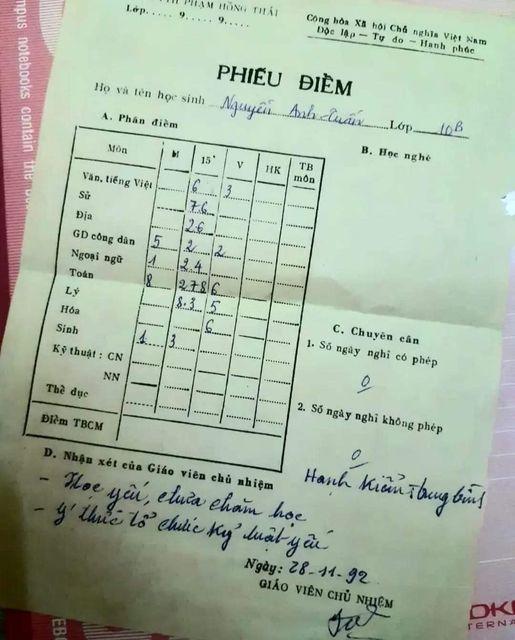 PHẠM HỒNG THÁI
Lớp.... 9.... 9....
Cộng hòa Xã hội Chủ nghĩa Việt Nam
Độc lập – Tự do – Hạnh phúc
PHIẾU ĐIỂM
Họ và tên học sinh Nguyễn Anh Tuấn Lớp 10B
A. Phần điểm
B. Học nghề
Môn M 15' V HK TB môn
Văn, tiếng Việt 6 3
Sử 7 6
Địa 2 6
GD công dân 5 2 2
Ngoại ngữ 1 2 4
Toán 8 2 7 8 6
Lý 8.3 5
Hóa 6
Sinh 1 3
Kỹ thuật : CN
NN
Thể dục
Điểm TBCM
C. Chuyên cần
1. Số ngày nghỉ có phép
0
2. Số ngày nghỉ không phép
0
Hạnh kiểm Trung bình
D. Nhận xét của Giáo viên chủ nhiệm
- Học yếu, chưa chăm học
- ý thức tổ chức kỷ luật yếu
Ngày: 28-11-92
GIÁO VIÊN CHỦ NHIỆM
mpus notebooks contain the